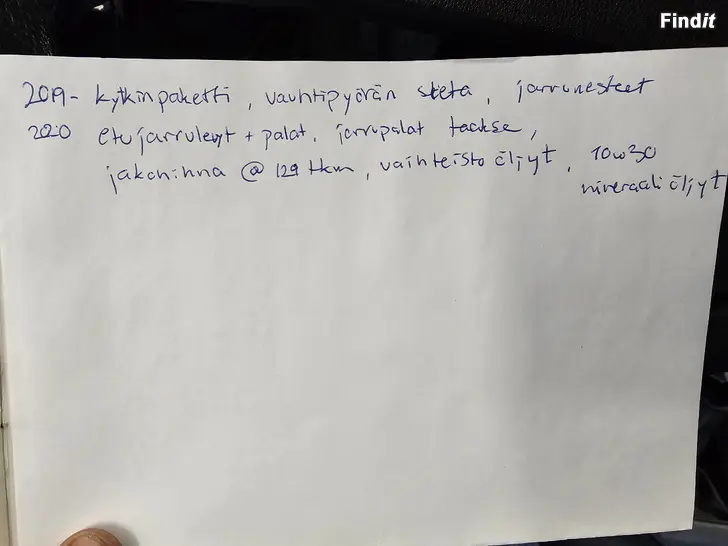 Findit
2019- kytkinpaketti, vauhtipyörän steta, jarrunesteet
2020 etujarrulevyt + palat, jarrupalat taakse,
jakohihna @ 129 tkm, vaihteisto öljyt, 10w30
mineraali öljyt